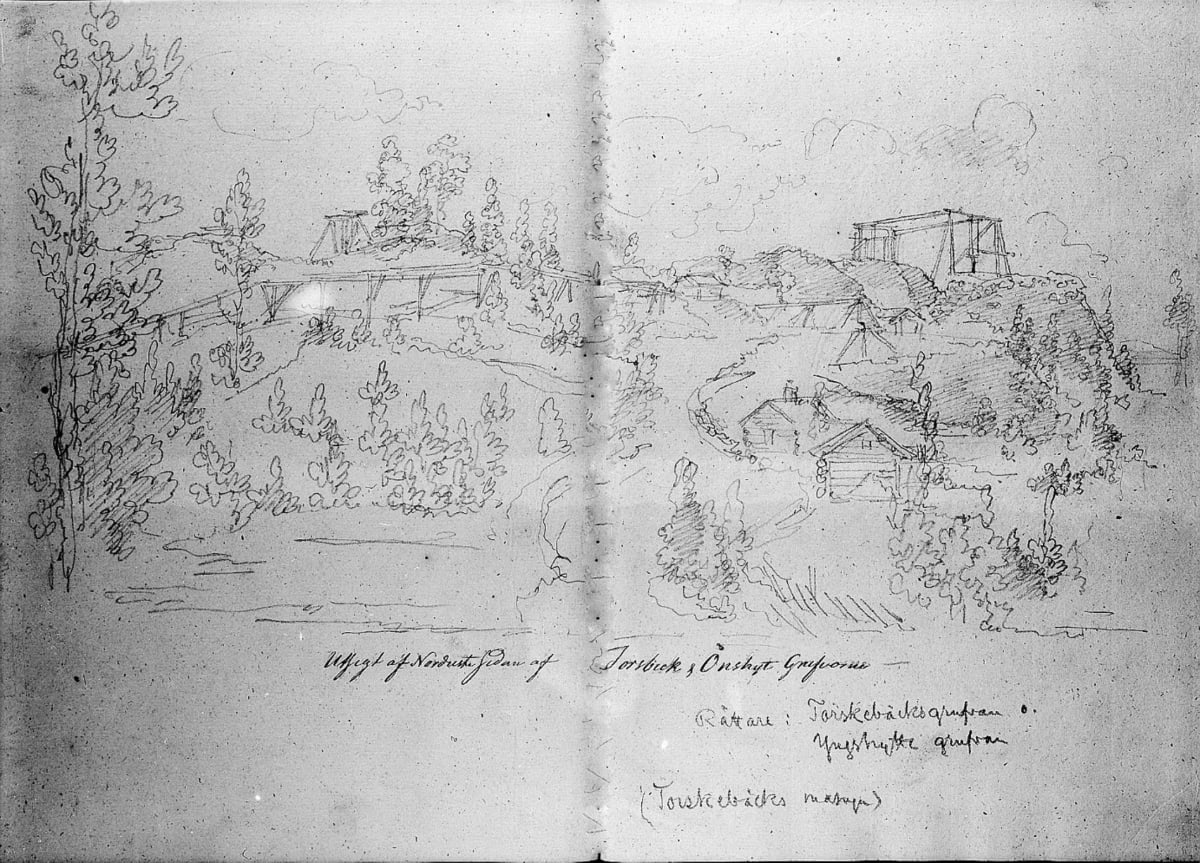 Utsigt af Nordvestr Sidan af Torsbeck & Önshyt Grufvorne —
Råttare: Torskebäcksgrufvan o.
Yngshytte grufvan
(Torskebäcks masugn)